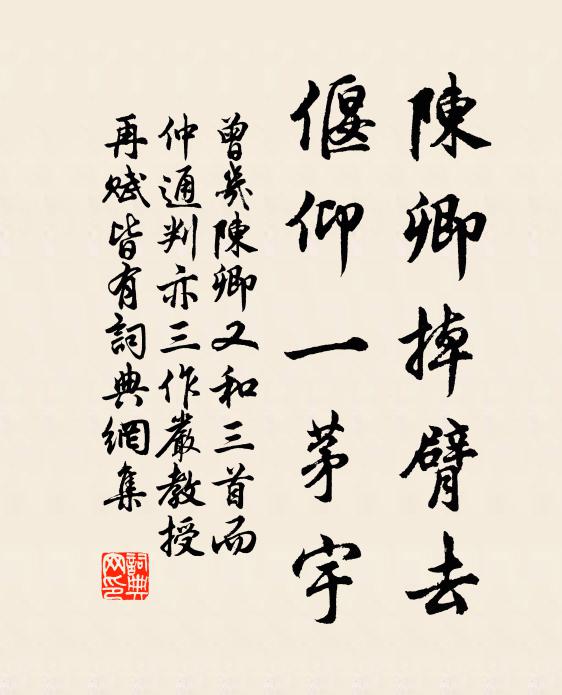 陳卿掉臂去
偃仰一茅宇
曾幾陳卿又和三首而
仲通判亦三作嚴教授
再賦皆有詞典網集
詞典
网印